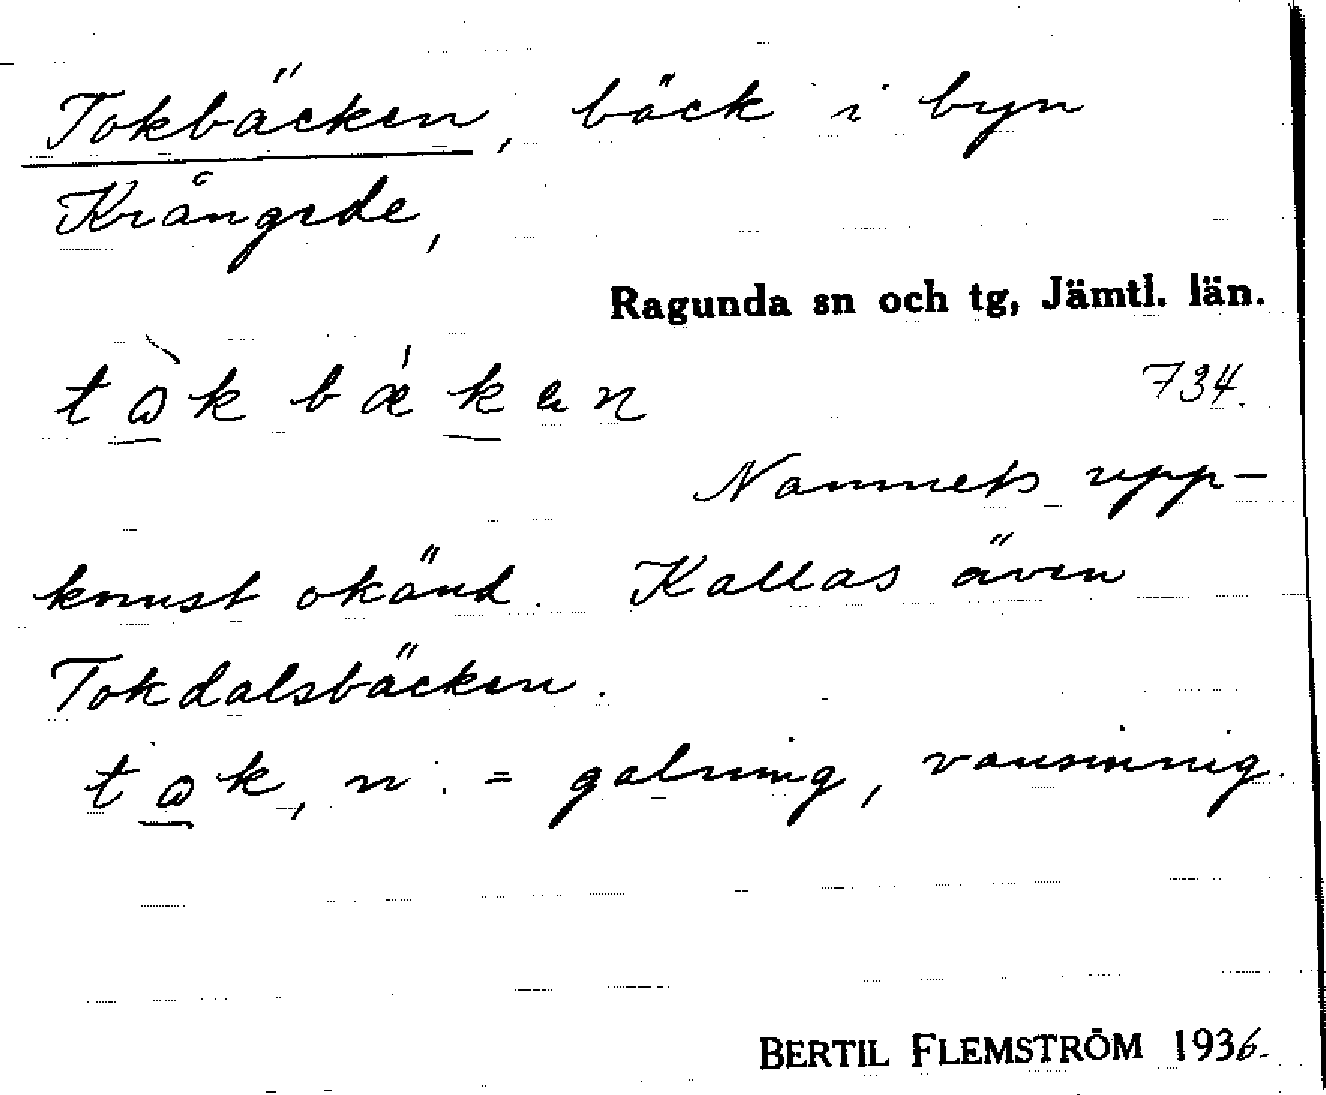 Tokbäcken, bäck i byn
Krångede,
Ragunda sn och tg, Jämtl. län.
tɷ̀kbǽkɐn
734.
Namnets upp-
komst okänd. Kallas även
Tokdalsbäcken.
tɷk, n. = galning, vansinnig.
BERTIL FLEMSTRÖM 1936.